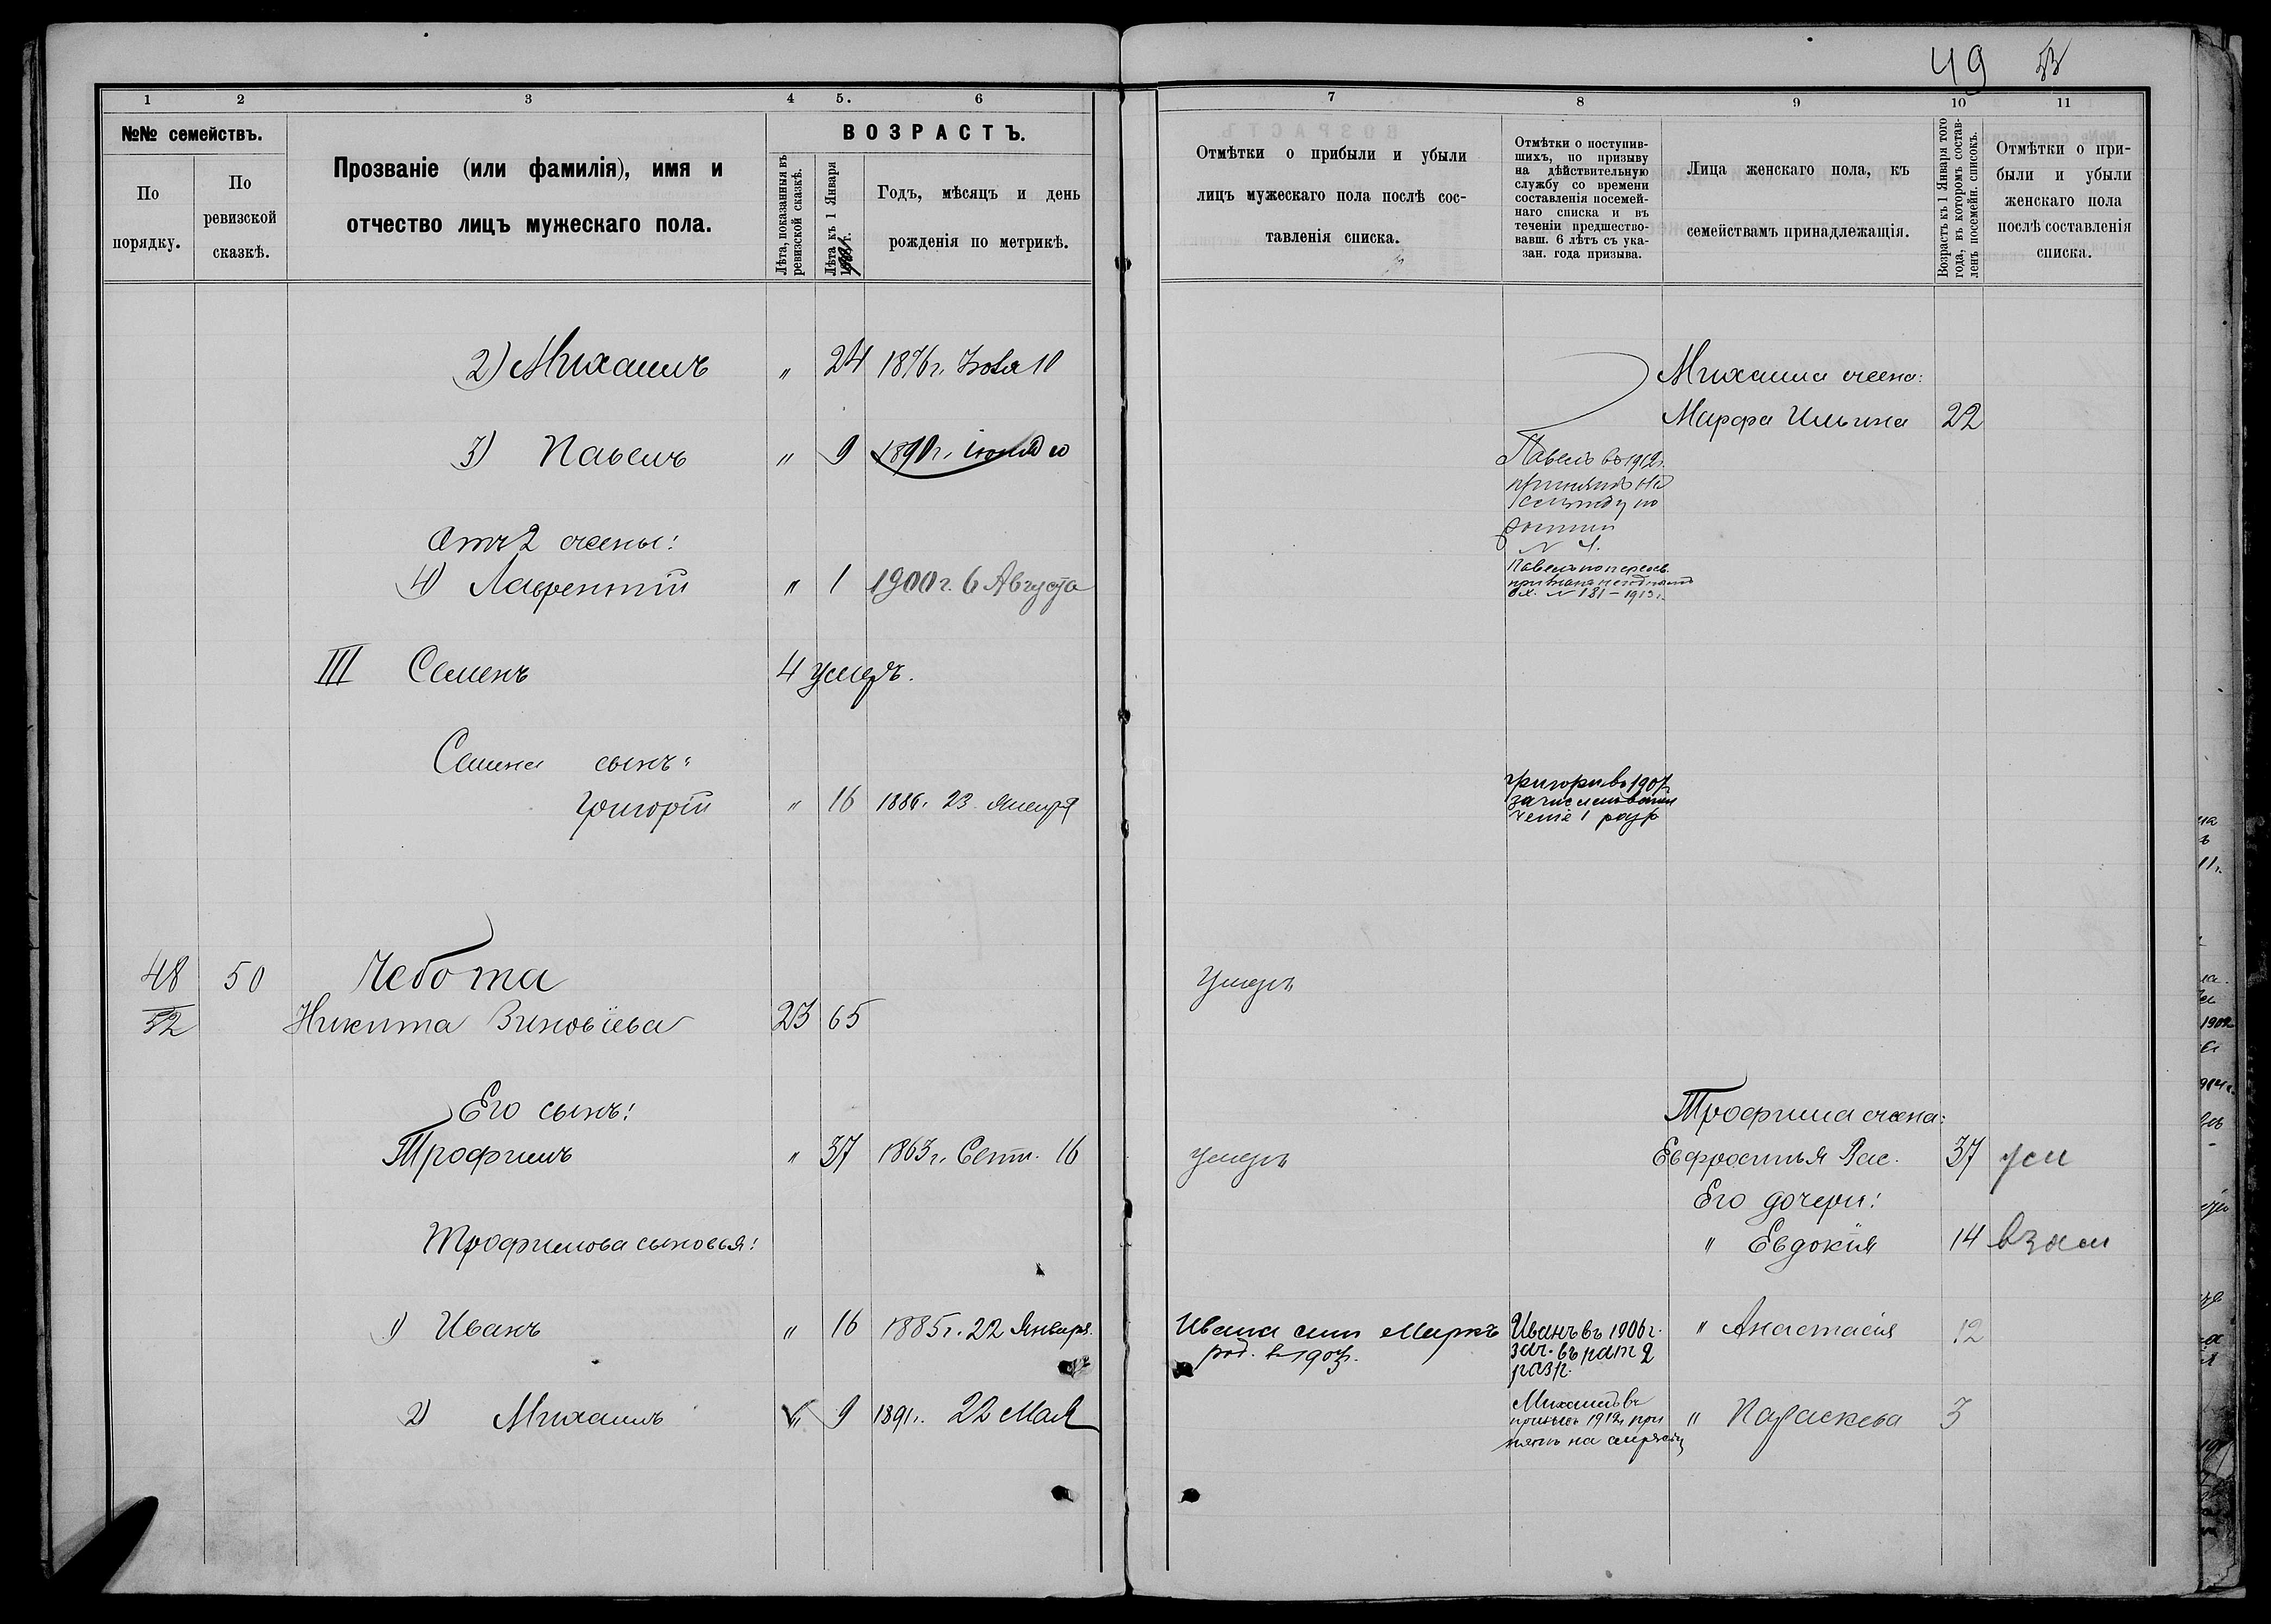 49
1
2
3
4
5.
6
№№ семействъ.
По порядку.
По ревизской сказкѣ.
Прозваніе (или фамилія), имя и
отчество лицъ мужескаго пола.
ВОЗРАСТЪ.
Лѣта, показанныя въ
ревизской сказкѣ.
Лѣта къ 1 Января
Годъ, мѣсяцъ и день
рожденія по метрикѣ.
2) Михаилъ " 24 1876 г. 10
3) Павелъ " 9 1891 г. іюня
Отъ 2 жены:
4) Лаврентій " 1 1900 г. 6 Августа
III Семенъ 4 умеръ.
Семена сынъ:
Григорій " 16 1886. 23 Января
48 50 Чебота
52 Никита Зиновіева 23 65
Его сынъ:
Трофимъ " 37 1863 г. Сент. 16
Трофимова сыновья:
1) Иванъ " 16 1885 г. 22 Января.
2) Михаилъ " 9 1891 г. 22 Мая
7
8
9
10
11
Отмѣтки о прибыли и убыли
лицъ мужескаго пола послѣ сос-
тавленія списка.
Отмѣтки о поступив-
шихъ, по призыву
на дѣйствительную
службу со времени
составленія посемей-
наго списка и въ
теченіи предшество-
вавш. 6 лѣтъ съ ука-
зан. года призыва.
Лица женскаго пола, къ
семействамъ принадлежащія.
Возрастъ къ 1 Января того
года, въ которомъ состав-
ленъ посемейн. списокъ.
Отмѣтки о при-
были и убыли
женскаго пола
послѣ составленія
списка.
Михаила жена:
Марфа Ильина 22
Павелъ въ 1912 г.
принятъ на
службу по
№ 4.
Павелъ по пересв.
признанъ негоднымъ
вх. № 181 – 1913 г.
Григорій въ 1907 г.
зачисленъ въ опол
ченіе 1 разр
Умеръ
Трофима жена:
умеръ Евфросинья Вас. 37 ум
Его дочери:
" Евдокія 14 взам
Ивана сын Маркъ
род. в 1907 г.
Иванъ въ 1906 г.
зач. въ рат 2
разр.
" Анастасія 12
Михаилъ въ
призывъ 1912 г при
нятъ на службу
" Параскева 3